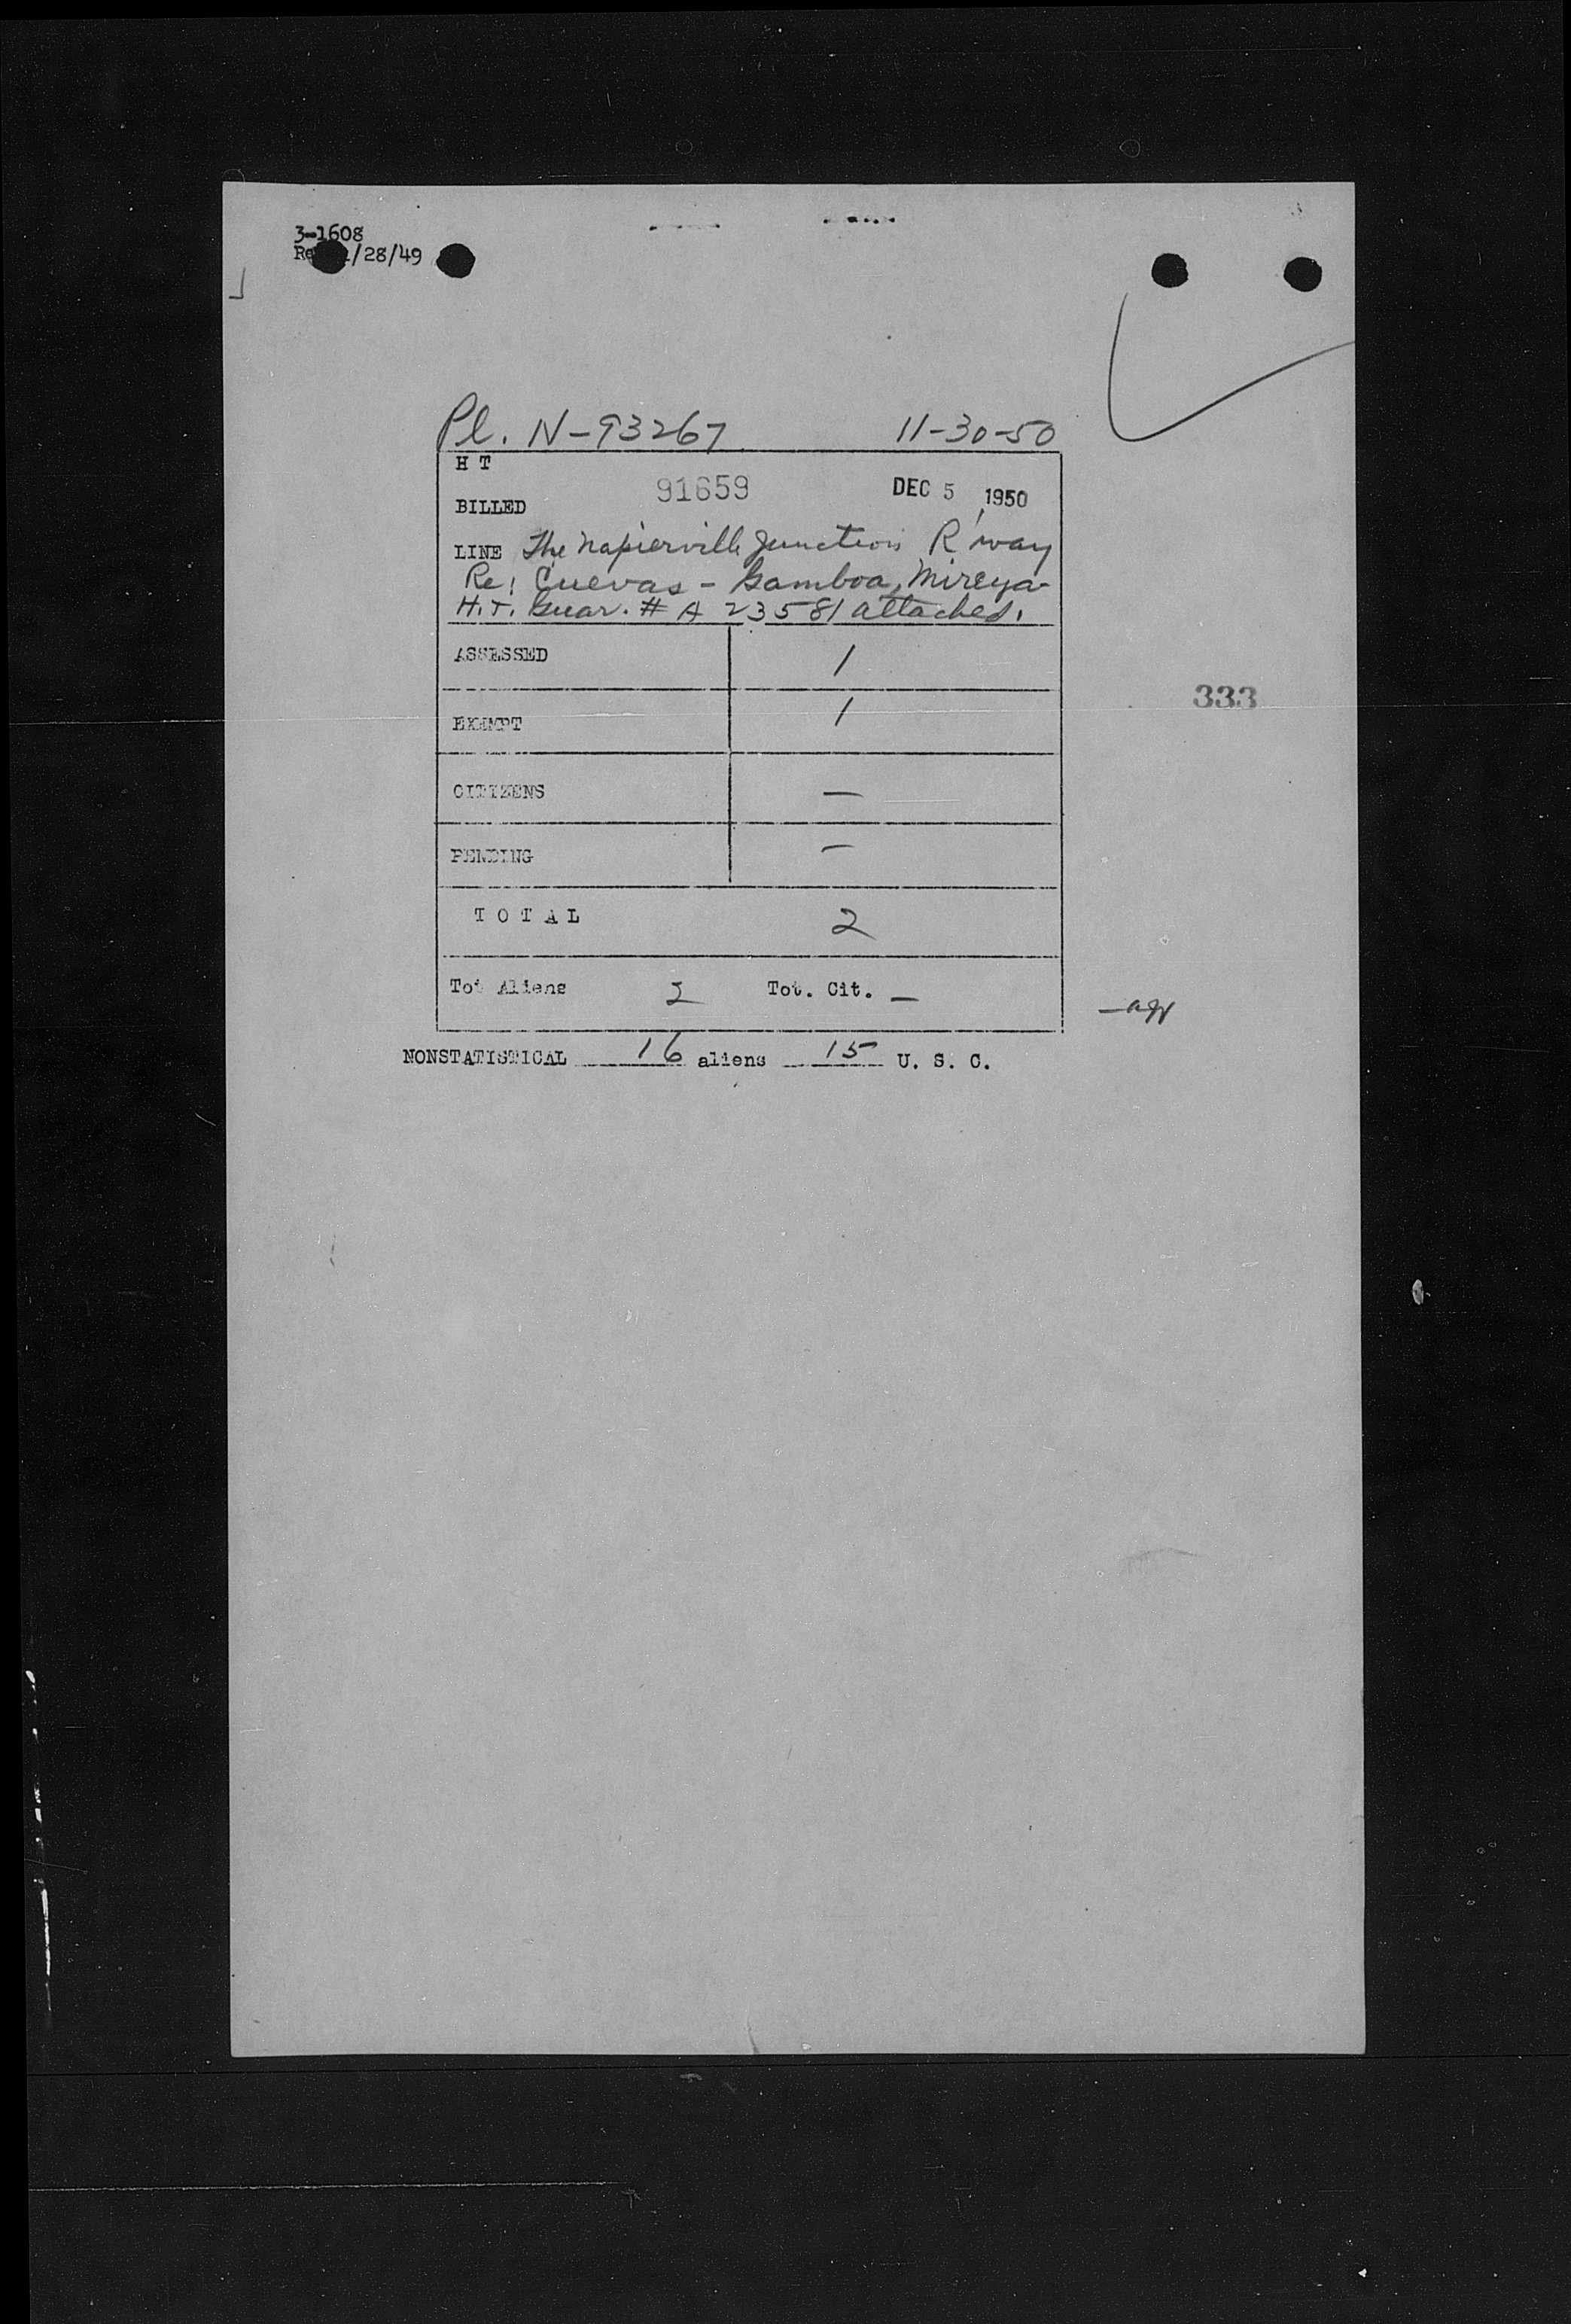 3-1608
/28/49
Pl. N-93267 11-30-50
H T
BILLED 91659 DEC 5 1950
LINE The Napierville Junction R'way
Re: Cuevas - Gamboa, Mireya
H.T. Guar. # A 23581 attached.
ASSESSED 1
333
EXEMPT 1
CITIZENS —
PENDING —
T O T A L 2
Tot Aliens 2 Tot. Cit. —
NONSTATISTICAL 16 aliens 15 U. S. C.